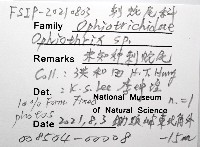 FSIP-2021-0803 刺蛇尾科
Family Ophiotrichidae
Ophiothrix sp.
Remarks 未知種刺蛇尾
Coll.: 洪和田 H.T. Hung
Det.: K.-S. Lee 李坤瑄
10% Form. Fixed National Museum n.=1
photos of Natural Science
Date 2021,8,3
008504-00008 -15m